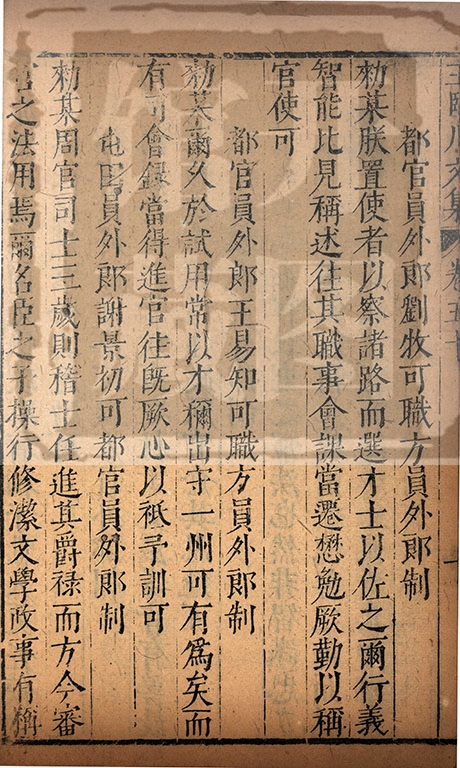 王臨川文集 卷五十
都官員外郎劉牧可職方員外郎制
勑某朕置使者以察諸路而選才士以佐之爾行義
智能比見稱述往其職事會課當遷懋勉厥勤以稱
官使可
都官員外郎王易知可職方員外郎制
勑某爾久於試用常以才稱出守一州可有爲矣而
有司會錄當得進官往旣厥心以祗予訓可
屯田員外郎謝景初可都官員外郎制
勑某周官司士三歲則稽士任進其爵祿而方今審
官之法用焉爾名臣之子操行修潔文學政事有稱